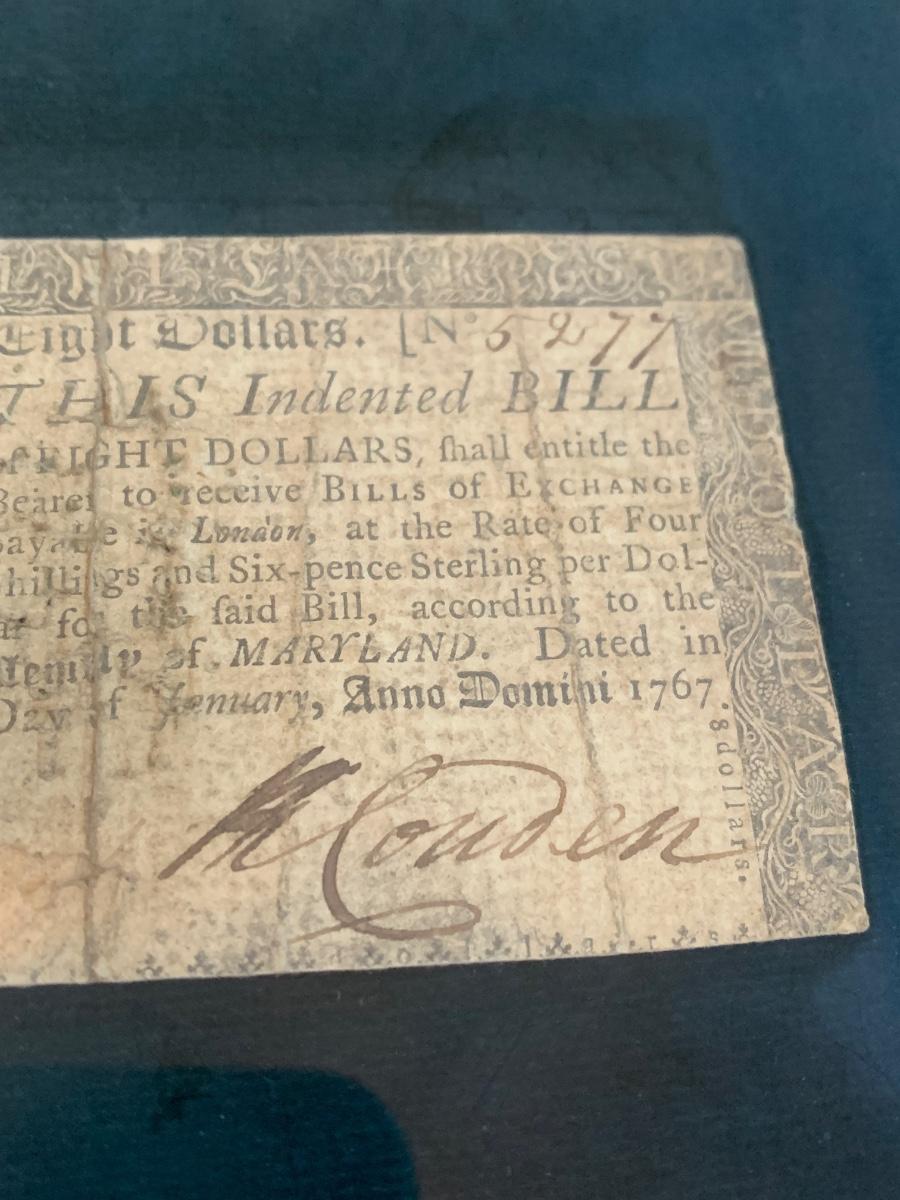 Eight Dollars. [No 5277
THIS Indented BILL
of EIGHT DOLLARS, ſhall entitle the
Bearer to receive BILLS of EXCHANGE
payable in London, at the Rate of Four
Shillings and Six-pence Sterling per Dol-
lar for the ſaid Bill, according to the
of MARYLAND. Dated in
Day of January, Anno Domini 1767.
8 dollars.
Couden
dollars